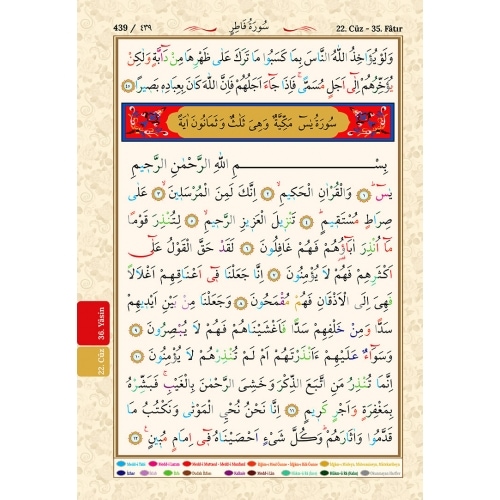 439 / ٤٣٩ سُورَةُ فَاطِرٍ 22. Cüz - 35. Fâtır
وَلَوْ يُؤَاخِذُ اللّٰهُ النَّاسَ بِمَا كَسَبُوا مَا تَرَكَ عَلٰى ظَهْرِهَا مِنْ دَابَّةٍ وَلٰكِنْ
يُؤَخِّرُهُمْ اِلٰٓى اَجَلٍ مُسَمًّىۚ فَاِذَا جَٓاءَ اَجَلُهُمْ فَاِنَّ اللّٰهَ كَانَ بِعِبَادِه۪ بَص۪يراً ﴿٤٥﴾
سُورَةُ يٰسٓ مَكِّيَّةٌ وَهِيَ ثَلٰثٌ وَثَمَانُونَ اٰيَةً
بِسْمِ اللّٰهِ الرَّحْمٰنِ الرَّح۪يمِ
يٰسٓۜ ﴿١﴾ وَالْقُرْاٰنِ الْحَك۪يمِۙ ﴿٢﴾ اِنَّكَ لَمِنَ الْمُرْسَل۪ينَۙ ﴿٣﴾ عَلٰى
صِرَاطٍ مُسْتَق۪يمٍۜ ﴿٤﴾ تَنْز۪يلَ الْعَز۪يزِ الرَّح۪يمِۙ ﴿٥﴾ لِتُنْذِرَ قَوْماً
مَٓا اُنْذِرَ اٰبَٓاؤُ۬هُمْ فَهُمْ غَافِلُونَ ﴿٦﴾ لَقَدْ حَقَّ الْقَوْلُ عَلٰٓى
اَكْثَرِهِمْ فَهُمْ لَا يُؤْمِنُونَ ﴿٧﴾ اِنَّا جَعَلْنَا ف۪ٓي اَعْنَاقِهِمْ اَغْلَالاً
فَهِيَ اِلَى الْاَذْقَانِ فَهُمْ مُقْمَحُونَ ﴿٨﴾ وَجَعَلْنَا مِنْ بَيْنِ اَيْد۪يهِمْ
سَداًّ وَمِنْ خَلْفِهِمْ سَداًّ فَاَغْشَيْنَاهُمْ فَهُمْ لَا يُبْصِرُونَ ﴿٩﴾
وَسَوَٓاءٌ عَلَيْهِمْ ءَاَنْذَرْتَهُمْ اَمْ لَمْ تُنْذِرْهُمْ لَا يُؤْمِنُونَ ﴿١٠﴾
اِنَّمَا تُنْذِرُ مَنِ اتَّبَعَ الذِّكْرَ وَخَشِيَ الرَّحْمٰنَ بِالْغَيْبِۚ فَبَشِّرْهُ
بِمَغْفِرَةٍ وَاَجْرٍ كَر۪يمٍ ﴿١١﴾ اِنَّا نَحْنُ نُحْيِ الْمَوْتٰى وَنَكْتُبُ مَا
قَدَّمُوا وَاٰثَارَهُمْۜ وَكُلَّ شَيْءٍ اَحْصَيْنَاهُ ف۪ٓي اِمَامٍ مُب۪ينٍ۟ ﴿١٢﴾
36. Yâsin
22. Cüz